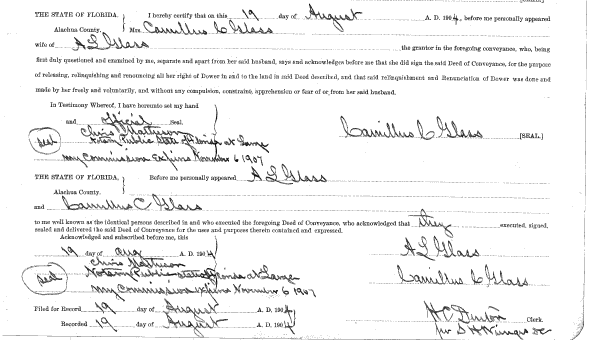 THE STATE OF FLORIDA. I hereby certify that on this 19 day of August A. D. 1904, before me personally appeared
Alachua County. Mrs Camillus C Glass
wife of A L Glass the grantor in the foregoing conveyance, who, being
first duly questioned and examined by me, separate and apart from her said husband, says and acknowledges before me that she did sign the said Deed of Conveyance, for the purpose
of releasing, relinquishing and renouncing all her right of Dower in and to the land in said Deed described, and that said relinquishment and Renunciation of Dower was done and
made by her freely and voluntarily, and without any compulsion, constraint, apprehension or fear of or from her said husband.
In Testimony Whereof, I have hereunto set my hand
and official Seal.
seal Chris Matheson Camillus C Glass [SEAL.]
Notary Public State of Florida at Large
my Commission Expires November 6 1907
THE STATE OF FLORIDA. Before me personally appeared A L Glass
Alachua County.
and Camillus C. Glass
to me well known as the identical persons described in and who executed the foregoing Deed of Conveyance, who acknowledged that they executed, signed,
sealed and delivered the said Deed of Conveyance for the uses and purposes therein contained and expressed.
Acknowledged and subscribed before me, this
19 day of Aug 1904 A L Glass
seal Chris Matheson
Notary Public State Florida at Large Camillus C Glass
my Commission Expires November 6 1907
Filed for Record 19 day of August A. D. 1904 H C Denton Clerk.
Recorded 19 day of August A. D. 1904 per S H DC